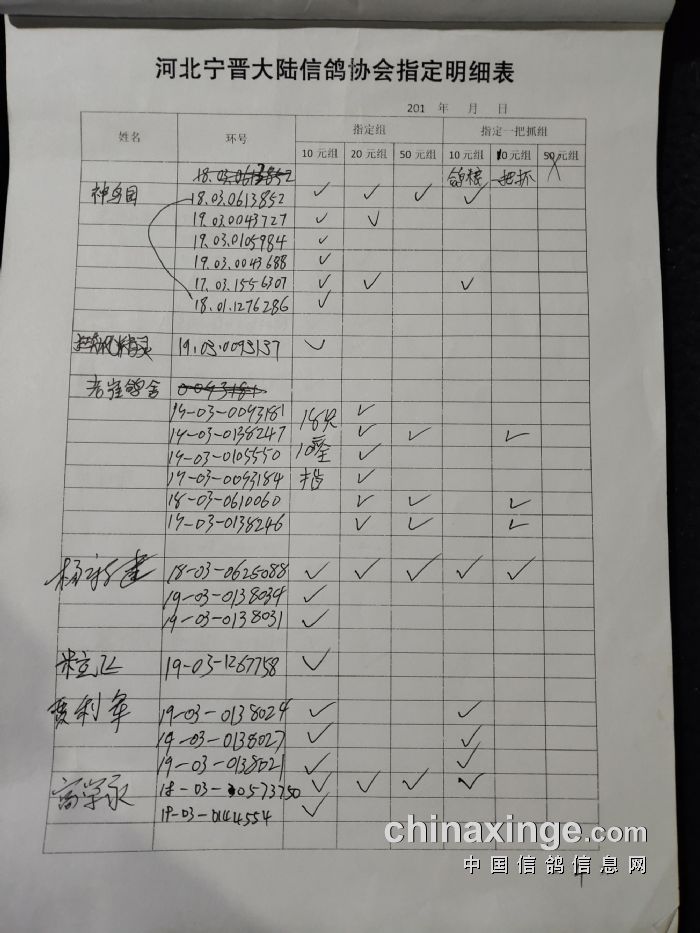 河北宁晋大陆信鸽协会指定明细表
201 年 月 日
姓名 环号 指定组 指定一把抓组
10 元组 20 元组 50 元组 10 元组 10 元组 50 元组
18.03.0613852 鸽棕 一把抓
神鸟园 18.03.0613852 ✓ ✓ ✓ ✓
19.03.0043727 ✓ ✓
19.03.0105984 ✓
19.03.0043688 ✓
17.03.1556307 ✓ ✓ ✓
18.01.1276286 ✓
19.03.0093137 ✓
老崔鸽舍 0093181
19-03-0093181 18只 ✓
19-03-0138247 ✓ ✓ ✓
19-03-0105550 10 全 ✓
19-03-0093184 指 ✓
18-03-0610060 ✓ ✓ ✓
19-03-0138246 ✓ ✓ ✓
18-03-0625088 ✓ ✓ ✓ ✓ ✓
19-03-0138034 ✓
19-03-0138031 ✓
19-03-1267758 ✓
贾利军 19-03-0138024 ✓ ✓
19-03-0138027 ✓ ✓
19-03-0138021 ✓ ✓
高学永 18-03-0573750 ✓ ✓ ✓ ✓
19-03-0144554 ✓
chinaxinge.com
中国信鸽信息网
4